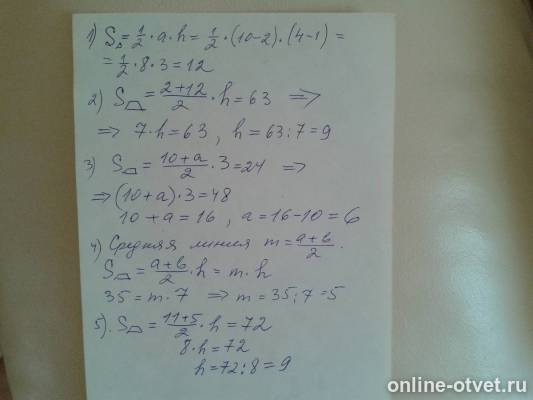 1) S△ = 1/2 · a · h = 1/2 · (10-2) · (4-1) =
= 1/2 · 8 · 3 = 12
2) S⏢ = (2+12)/2 · h = 63 ⇒
⇒ 7·h = 63, h = 63:7 = 9
3) S⏢ = (10+a)/2 · 3 = 24 ⇒
⇒ (10+a)·3 = 48
10 + a = 16, a = 16-10 = 6
4) Средняя линия m = (a+b)/2.
S⏢ = (a+b)/2 · h = m · h
35 = m · 7 ⇒ m = 35:7 = 5
5). S⏢ = (11+5)/2 · h = 72
8·h = 72
h = 72:8 = 9
online-otvet.ru